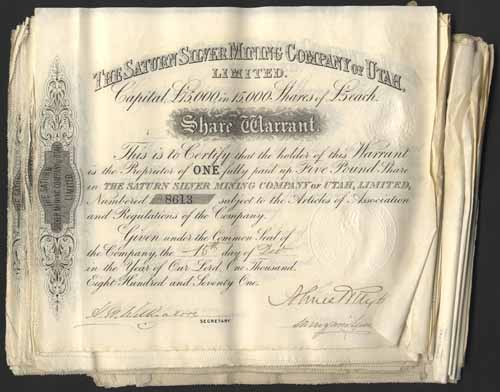 THE SATURN SILVER MINING COMPANY OF UTAH,
LIMITED.
Capital, £75,000 in 15,000 Shares of £5 each.
Share Warrant.
This is to Certify that the holder of this Warrant
is the Proprietor of ONE fully paid up Five Pound Share
in THE SATURN SILVER MINING COMPANY OF UTAH, LIMITED,
Numbered 8613 subject to the Articles of Association
and Regulations of the Company.
Given under the Common Seal of
the Company, the 15th day of
in the Year of Our Lord, One Thousand
Eight Hundred and Seventy One.
SECRETARY